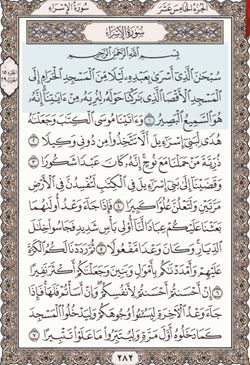 سُورَةُ الإِسْرَاءِ
الجُزْءُ الخَامِسَ عَشَرَ
سُورَةُ الإِسْرَاءِ
بِسْمِ اللَّهِ الرَّحْمَٰنِ الرَّحِيمِ
سُبْحَٰنَ الَّذِي أَسْرَىٰ بِعَبْدِهِ لَيْلًا مِّنَ الْمَسْجِدِ الْحَرَامِ إِلَى
الْمَسْجِدِ الْأَقْصَا الَّذِي بَٰرَكْنَا حَوْلَهُ لِنُرِيَهُ مِنْ ءَايَٰتِنَا إِنَّهُ
هُوَ السَّمِيعُ الْبَصِيرُ ١ وَءَاتَيْنَا مُوسَى الْكِتَٰبَ وَجَعَلْنَٰهُ
هُدًى لِّبَنِي إِسْرَٰٓءِيلَ أَلَّا تَتَّخِذُوا مِن دُونِي وَكِيلًا ٢
ذُرِّيَّةَ مَنْ حَمَلْنَا مَعَ نُوحٍ إِنَّهُ كَانَ عَبْدًا شَكُورًا ٣
وَقَضَيْنَا إِلَىٰ بَنِي إِسْرَٰٓءِيلَ فِي الْكِتَٰبِ لَتُفْسِدُنَّ فِي الْأَرْضِ
مَرَّتَيْنِ وَلَتَعْلُنَّ عُلُوًّا كَبِيرًا ٤ فَإِذَا جَاءَ وَعْدُ أُولَىٰهُمَا
بَعَثْنَا عَلَيْكُمْ عِبَادًا لَّنَا أُولِي بَأْسٍ شَدِيدٍ فَجَاسُوا خِلَٰلَ
الدِّيَارِ وَكَانَ وَعْدًا مَّفْعُولًا ٥ ثُمَّ رَدَدْنَا لَكُمُ الْكَرَّةَ
عَلَيْهِمْ وَأَمْدَدْنَٰكُم بِأَمْوَٰلٍ وَبَنِينَ وَجَعَلْنَٰكُمْ أَكْثَرَ نَفِيرًا
٦ إِنْ أَحْسَنتُمْ أَحْسَنتُمْ لِأَنفُسِكُمْ وَإِنْ أَسَأْتُمْ فَلَهَا فَإِذَا
جَاءَ وَعْدُ الْءَاخِرَةِ لِيَسُۥٓـُٔوا وُجُوهَكُمْ وَلِيَدْخُلُوا الْمَسْجِدَ
كَمَا دَخَلُوهُ أَوَّلَ مَرَّةٍ وَلِيُتَبِّرُوا مَا عَلَوْا تَتْبِيرًا ٧
٢٨٢